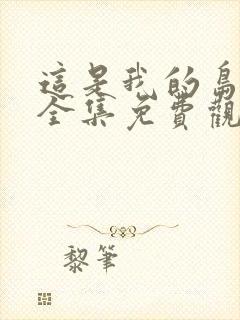 這是我的島
全集免費觀
黎筆